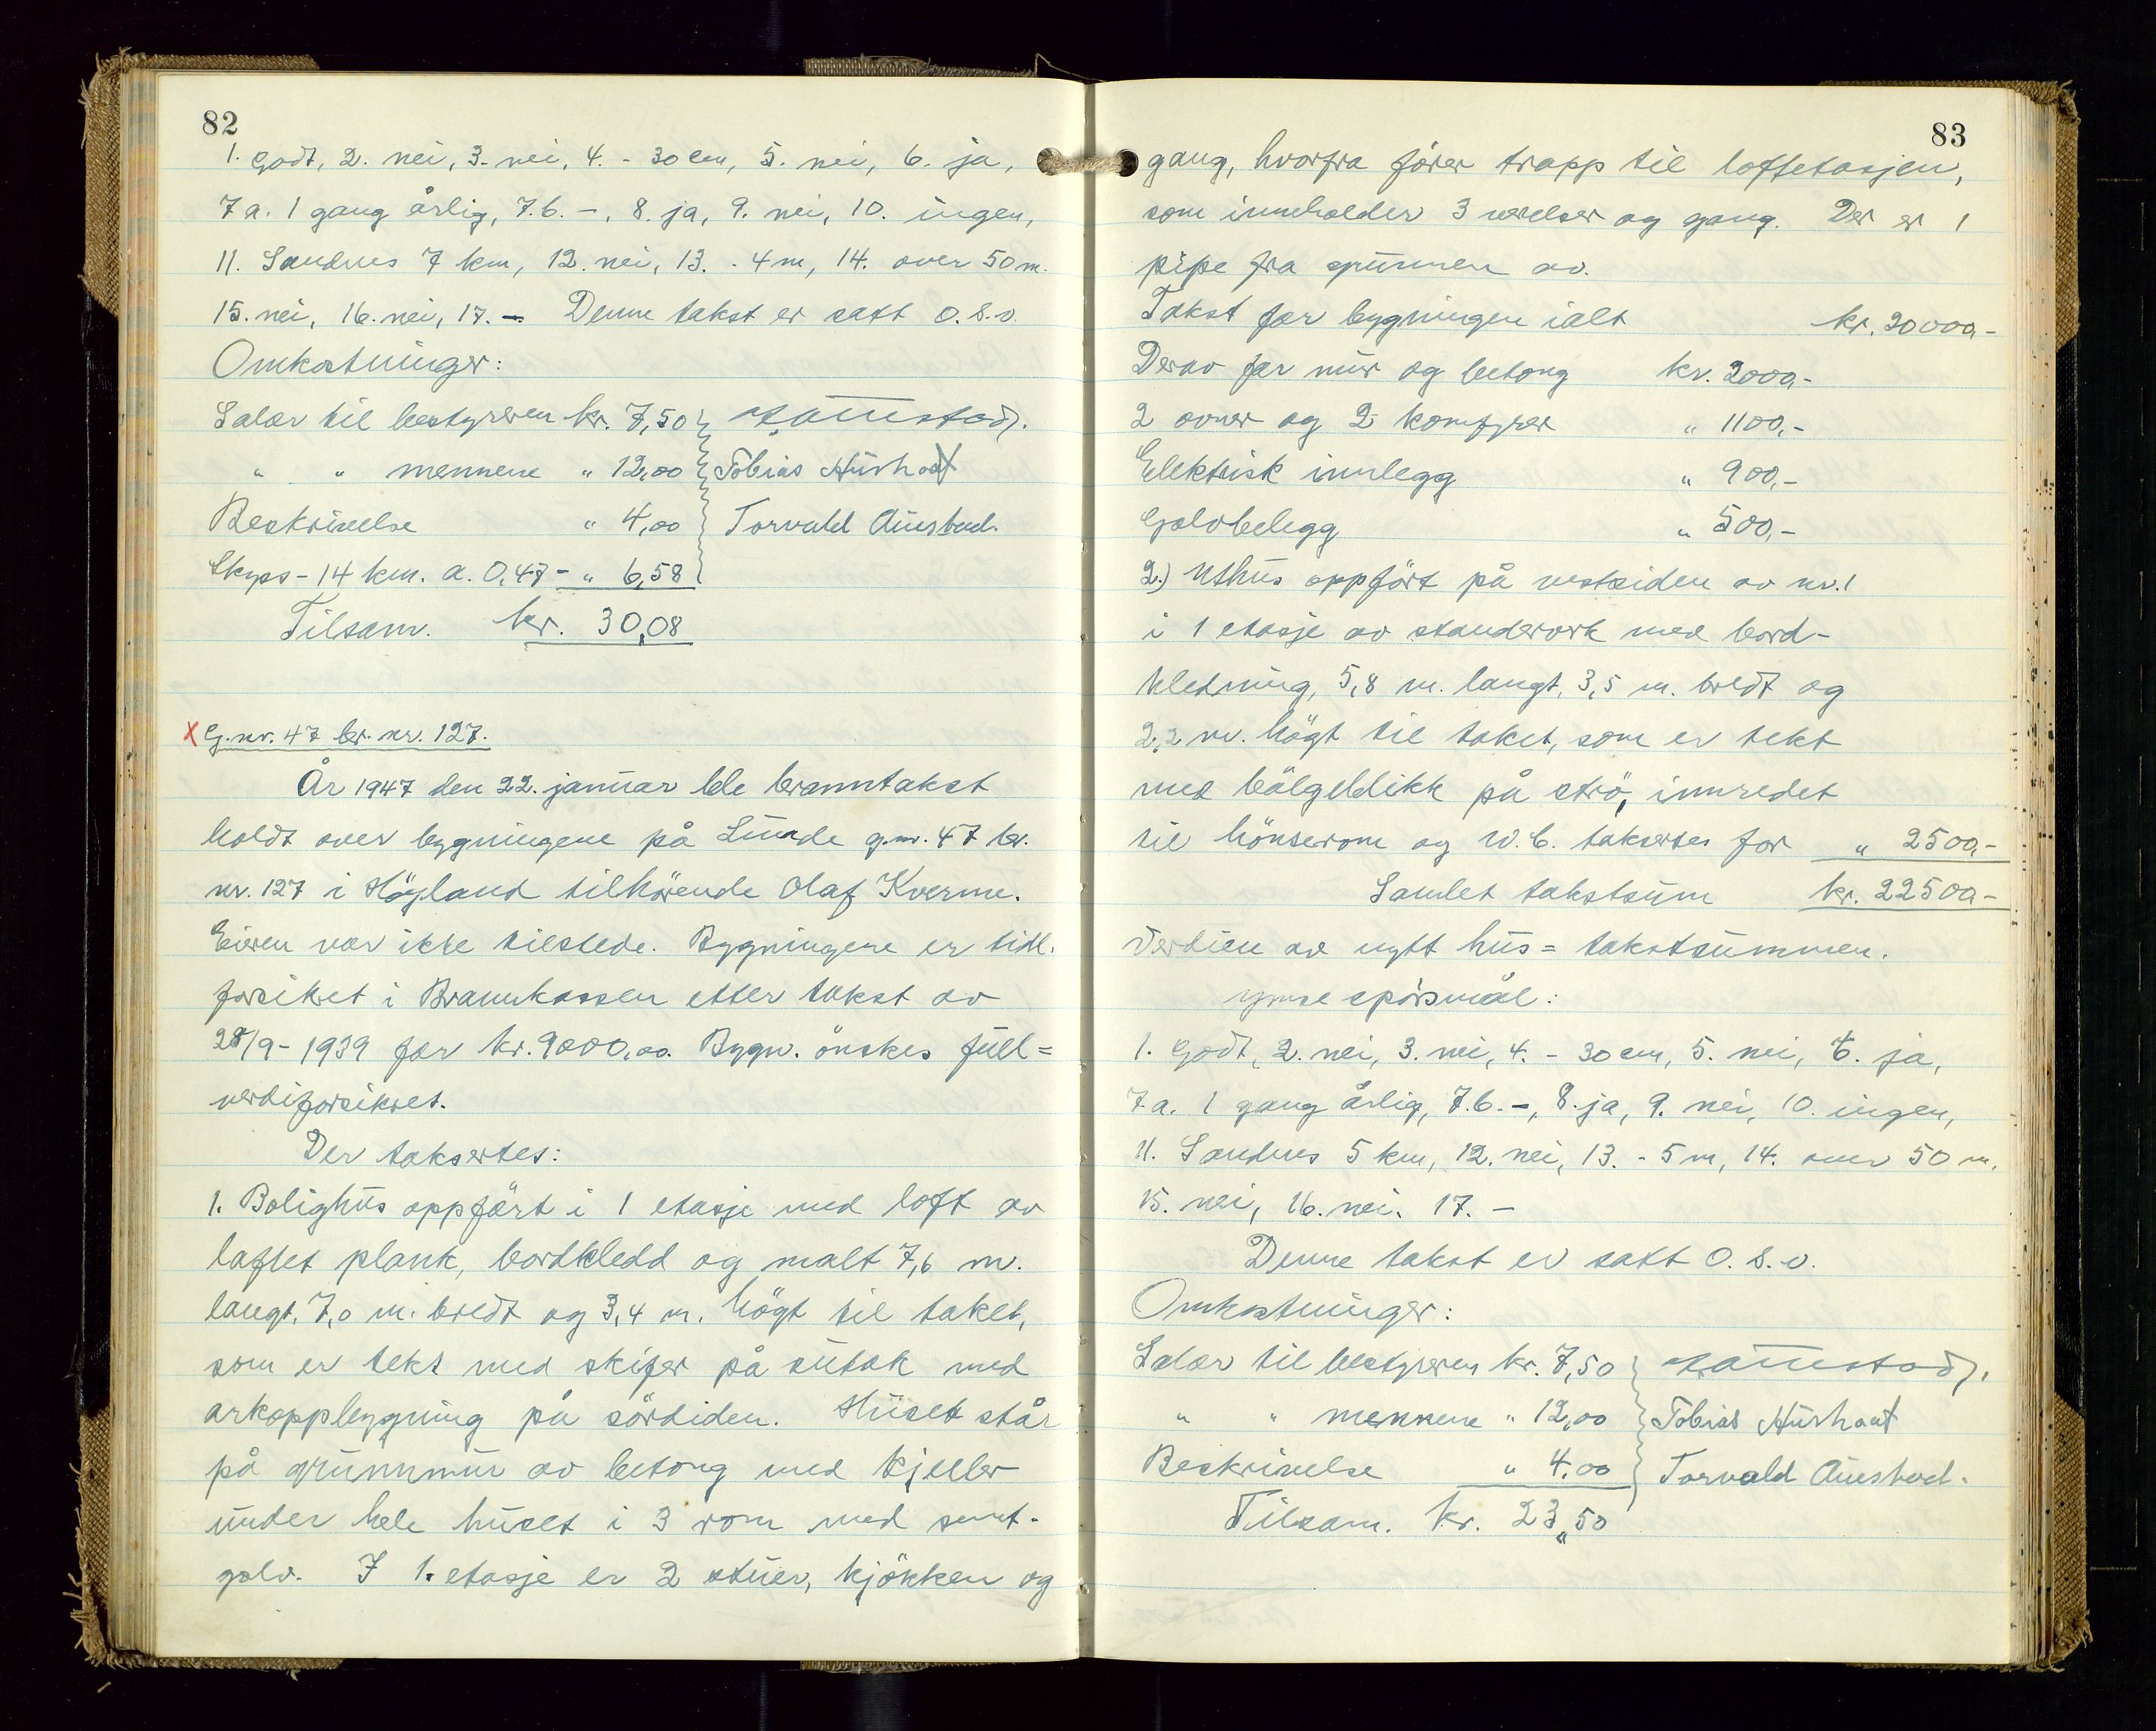 82
1. Godt, 2. nei, 3. nei, 4. - 30 cm, 5. nei, 6. ja,
7 a. 1 gang årlig, 7.b. -, 8. ja, 9. nei, 10. ingen,
11. Sandnes 7 km, 12. nei, 13. - 4 m, 14. over 50 m.
15. nei, 16. nei, 17. - Denne takst er satt O.S.v.
Omkostninger:
Salær til bestyreren kr. 7,50
" " mennene " 12,00 Tobias Aürhaat
Beskrivelse " 4,00 Torvald Auestad.
Skyss - 14 km. a. 0,47 - " 6,58
Tilsam. kr. 30,08
x G.nr. 47 br. nr. 127.
År 1947 den 22. januar ble branntakst
holdt over bygningene på Lunde g.nr. 47 br.
nr. 127 i Høyland tilhørende Olaf Kverme.
Eieren var ikke tilstede. Bygningene er tidl.
forsikret i Brannkassen etter takst av
28/9 - 1939 for kr. 9000,00. Bygn. ønskes full=
verdiforsikret.
Der taksertes:
1. Bolighus oppført i 1 etasje med loft av
laftet plank, bordkledd og malt 7,6 m.
langt, 7,0 m. bredt og 3,4 m. høgt til taket,
som er tekt med skifer på sutak med
arkoppbygning på sørsiden. Huset står
på grunnmur av betong med kjeller
under hele huset i 3 rom med sement-
golv. I 1. etasje er 2 stuer, kjøkken og
83
gang, hvorfra fører trapp til loftetasjen,
som inneholder 3 værelser og gang. Der er 1
pipe fra grunnen av.
Takst for bygningen ialt kr. 20000,-
Derav for mur og betong kr. 2000,-
2 ovner og 2 komfyrer " 1100,-
Elektrisk innlegg " 900,-
Golvbelegg " 500,-
2.) Uthus oppført på vestsiden av nr. 1
i 1 etasje av standerverk med bord-
kledning, 5,8 m. langt, 3,5 m. bredt og
2,2 m. høgt til taket, som er tekt
med bølgeblikk på strø, innredet
til hønserom og W.C. taksertes for " 2500,-
Samlet takstsum kr. 22500,-
Verdien av nytt hus = takstsummen.
Ymse spørsmål:
1. Godt, 2. nei, 3. nei, 4. - 30 cm, 5. nei, 6. ja,
7 a. 1 gang årlig, 7.b. -, 8. ja, 9. nei, 10. ingen,
11. Sandnes 5 km, 12. nei, 13. - 5 m, 14. over 50 m.
15. nei, 16. nei. 17. -
Denne takst er satt O.S.v.
Omkostninger:
Salær til bestyreren kr. 7,50
" " mennene " 12,00 Tobias Aürhaat
Beskrivelse " 4,00 Torvald Auestad.
Tilsam. kr. 23,50